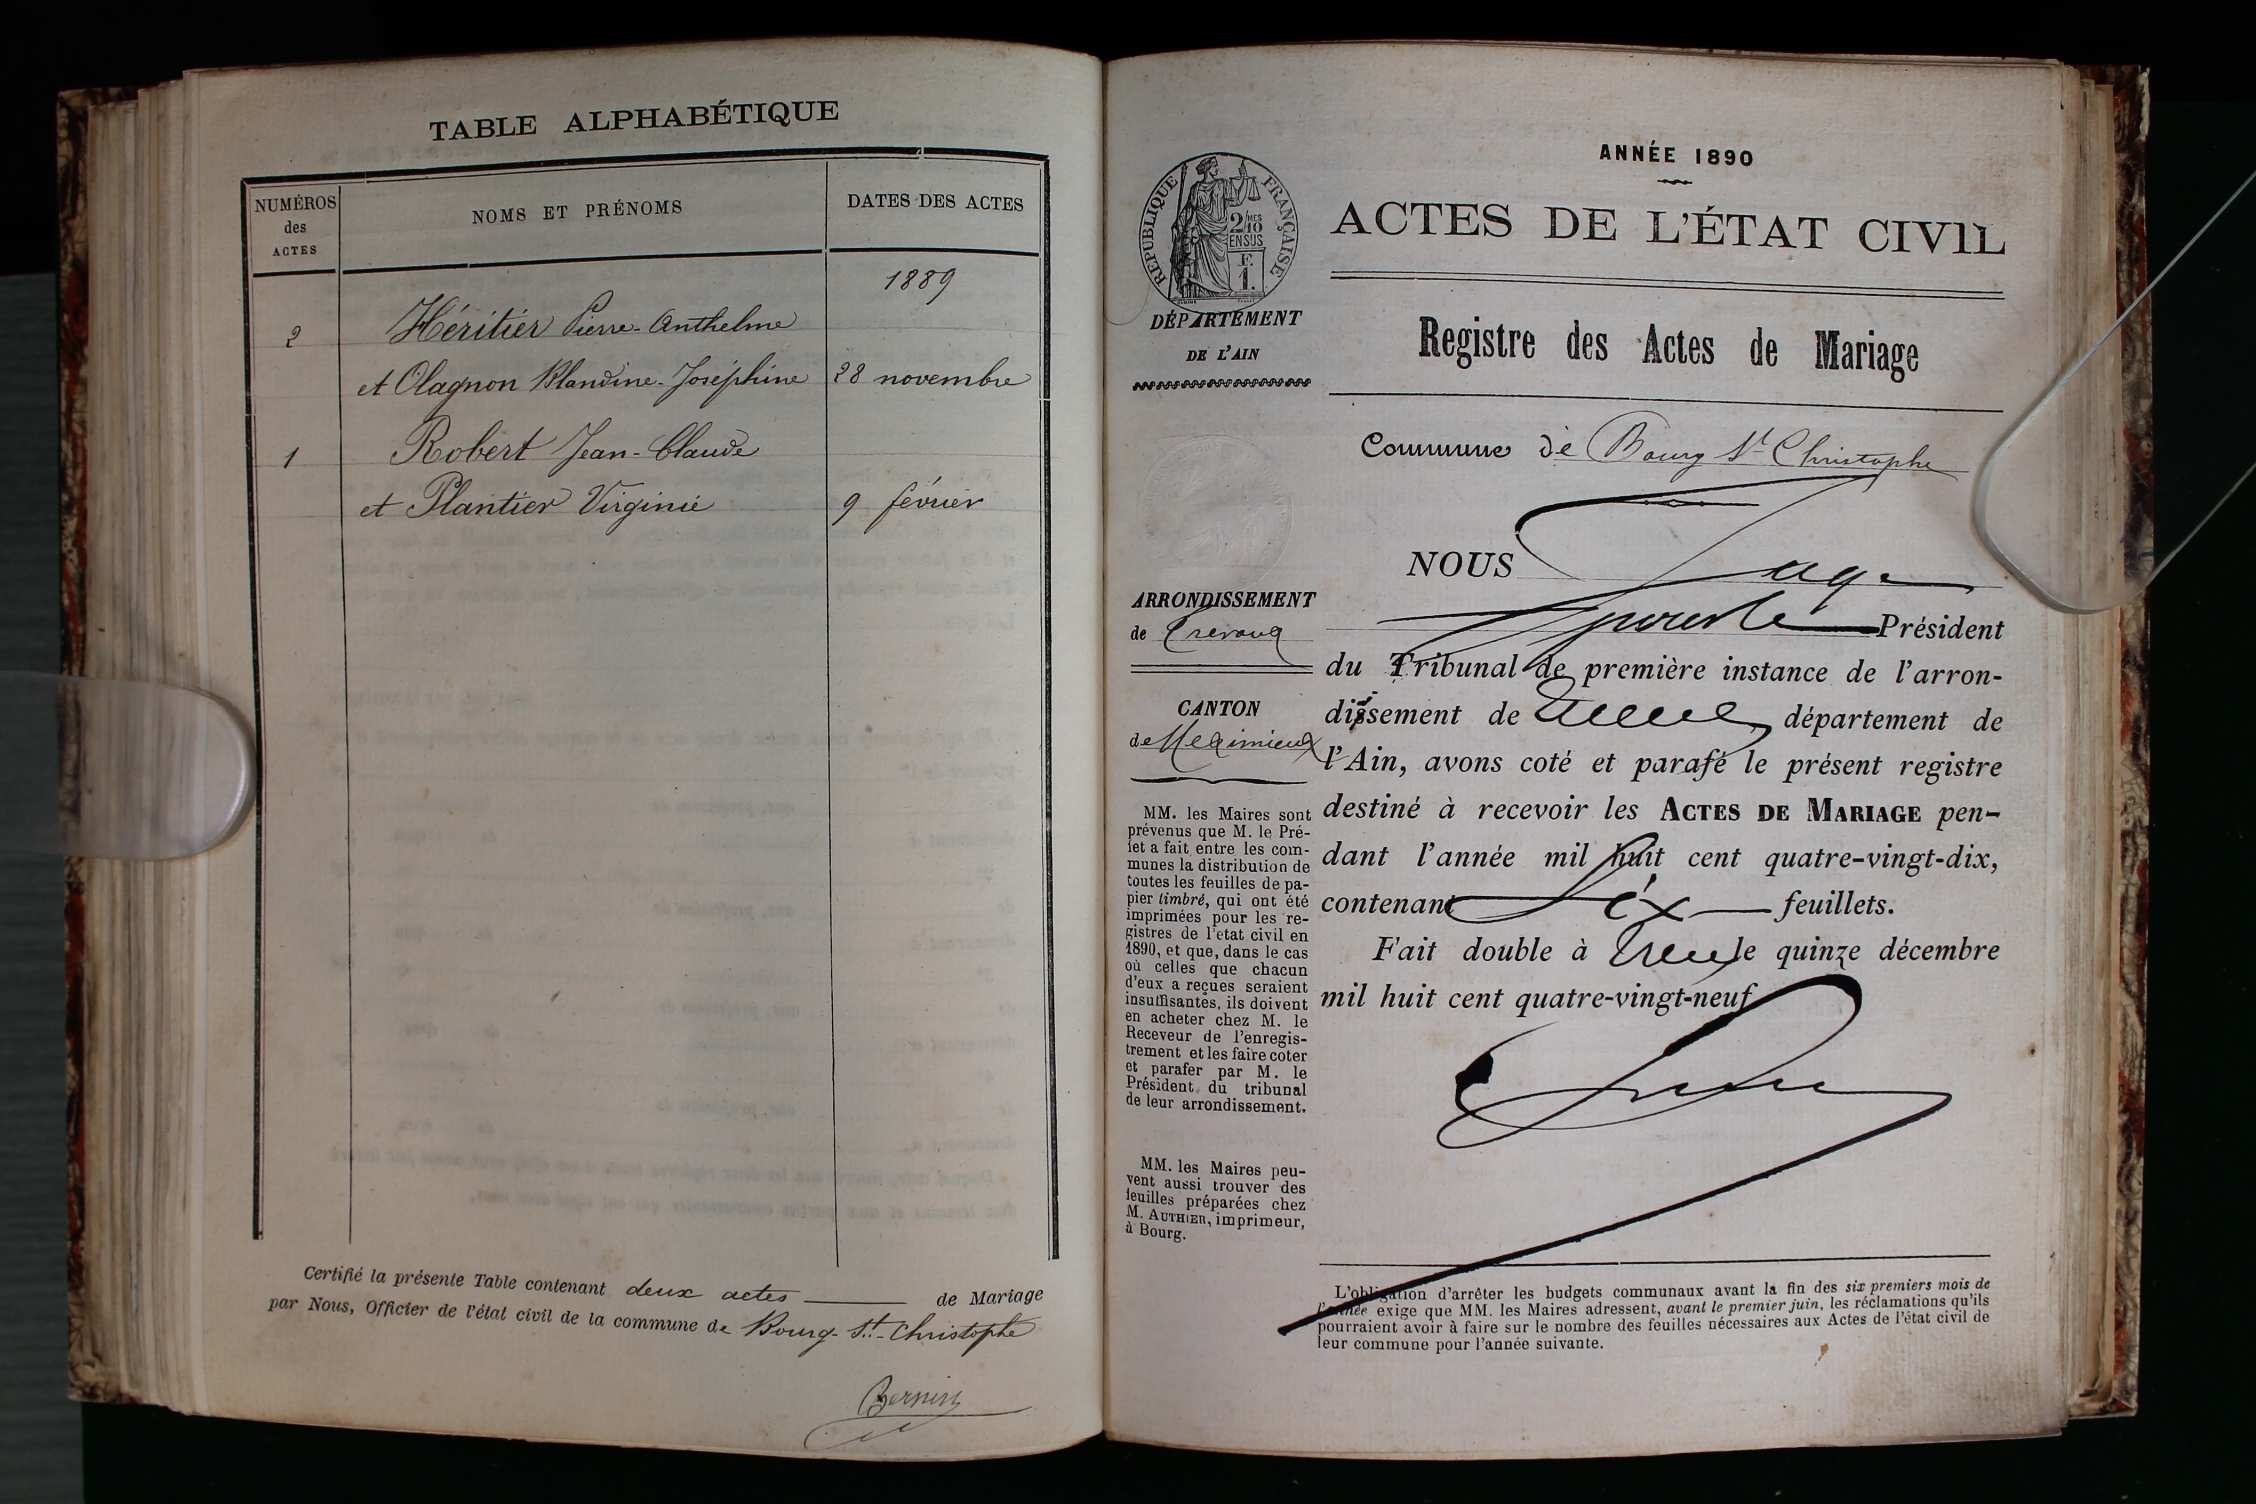 TABLE ALPHABÉTIQUE
NUMÉROS
des
ACTES
NOMS ET PRÉNOMS
DATES DES ACTES
1889
2
Héritier Pierre-Anthelme
et Olagnon Blandine-Joséphine
28 novembre
1
Robert Jean-Claude
et Plantier Virginie
9 février
Certifié la présente Table contenant deux actes de Mariage
par Nous, Officier de l'état civil de la commune de Bourg-St-Christophe
RÉPUBLIQUE FRANÇAISE
2/MES
10
EN SUS
F.
1.
DÉPARTEMENT
DE L'AIN
ARRONDISSEMENT
de Trevoux
CANTON
de Meximieux
MM. les Maires sont
prévenus que M. le Pré-
fet a fait entre les com-
munes la distribution de
toutes les feuilles de pa-
pier timbré, qui ont été
imprimées pour les re-
gistres de l'etat civil en
1890, et que, dans le cas
où celles que chacun
d'eux a reçues seraient
insuffisantes, ils doivent
en acheter chez M. le
Receveur de l'enregis-
trement et les faire coter
et parafer par M. le
Président du tribunal
de leur arrondissement.
MM. les Maires peu-
vent aussi trouver des
feuilles préparées chez
M. AUTHIER, imprimeur,
à Bourg.
ANNÉE 1890
ACTES DE L'ÉTAT CIVIL
Registre des Actes de Mariage
Commune de Bourg St Christophe
NOUS
Président
du Tribunal de première instance de l'arron-
dissement de département de
l'Ain, avons coté et parafé le présent registre
destiné à recevoir les ACTES DE MARIAGE pen-
dant l'année mil huit cent quatre-vingt-dix,
contenant Six feuillets.
Fait double à le quinze décembre
mil huit cent quatre-vingt-neuf
L'obligation d'arrêter les budgets communaux avant la fin des six premiers mois de
l'année exige que MM. les Maires adressent, avant le premier juin, les réclamations qu'ils
pourraient avoir à faire sur le nombre des feuilles nécessaires aux Actes de l'état civil de
leur commune pour l'année suivante.